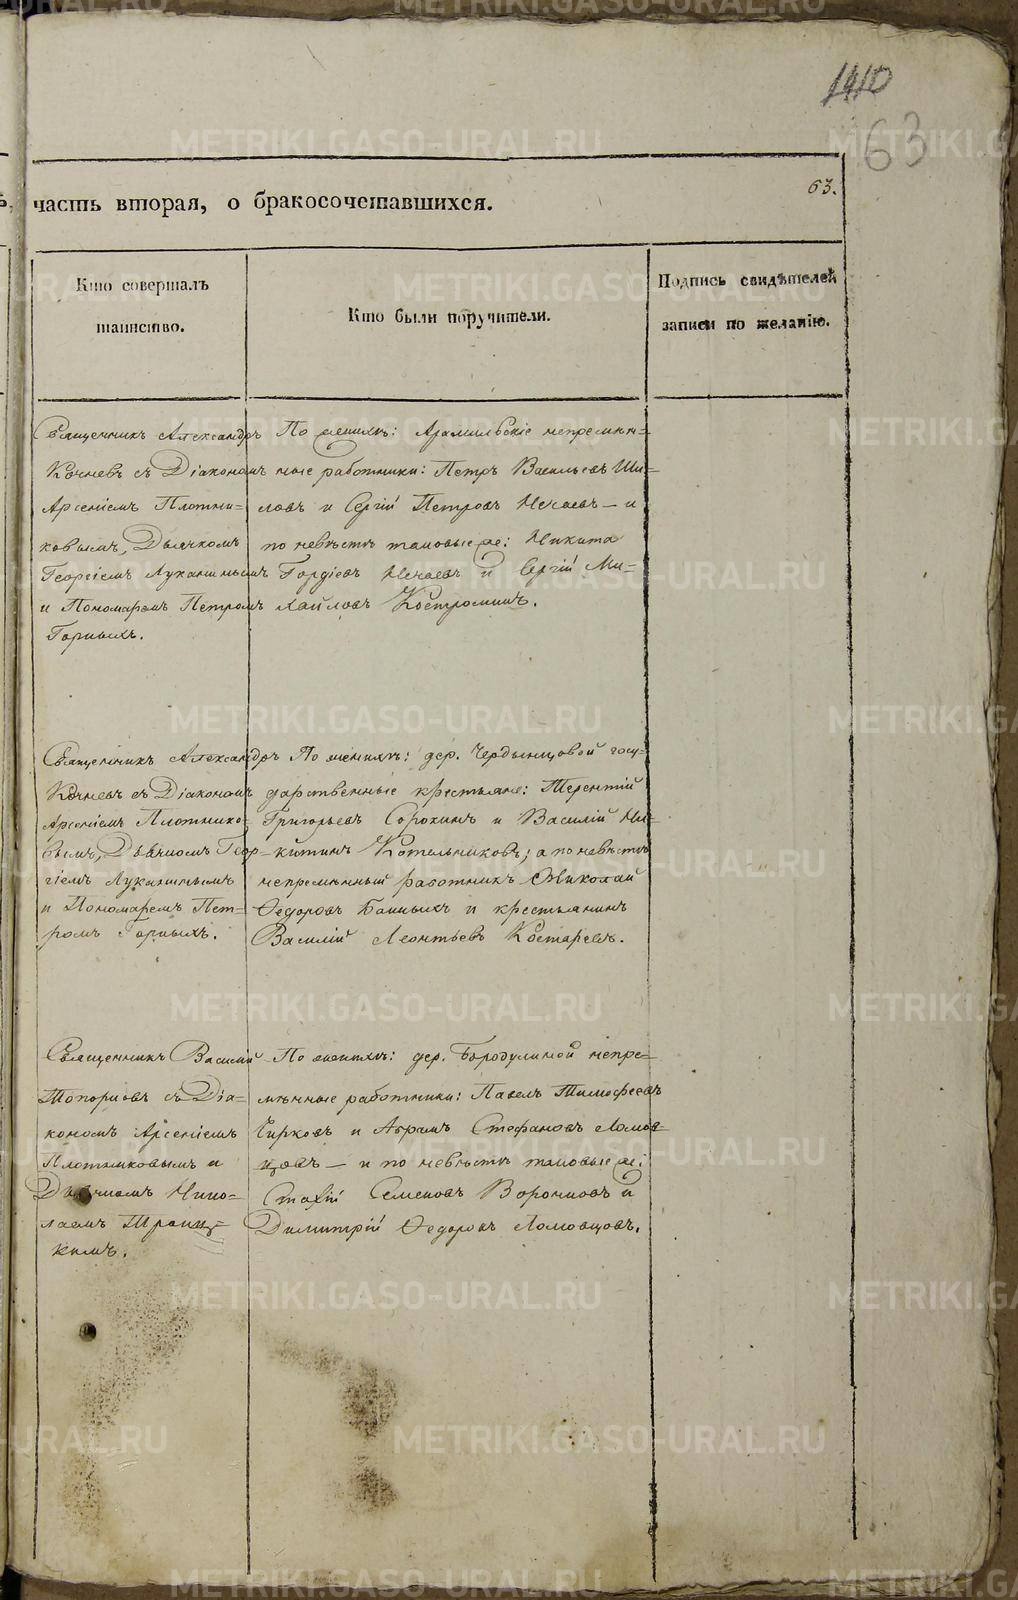 1410
63
63.
часть вторая, о бракосочетавшихся.
Кто совершалъ
таинство.
Кто были поручители.
Подпись свидѣтелей
записи по желанію.
Священникъ Александръ
Кочневъ съ Діакономъ
Арсеніемъ Плотни=
ковымъ, Дьячкомъ
Георгіемъ Луканинымъ
и Пономаремъ Петромъ
Горныхъ.
По женихѣ: Арамильскіе непремѣн=
ные работники: Петръ Васильевъ Ши=
ловъ и Сергій Петровъ Нечаевъ — и
по невѣстѣ таковые же: Никита
Гордіевъ Нечаевъ и Сергій Ми=
хайловъ Костроминъ.
Священникъ Александръ
Кочневъ съ Діакономъ
Арсеніемъ Плотнико=
вымъ, Дьячкомъ Геор=
гіемъ Луканинымъ
и Пономаремъ Пет=
ромъ Горныхъ.
По женихѣ: дер. Чердынцовой госу=
дарственные крестьяне: Терентій
Григорьевъ Сорокинъ и Василій Ни=
китинъ Котельниковъ; а по невѣстѣ
непремѣнный работникъ Николай
Ѳедоровъ Банныхъ и крестьянинъ
Василій Леонтьевъ Костаревъ.
Священникъ Василій
Топорковъ съ Діа=
кономъ Арсеніемъ
Плотниковымъ и
Дьячкомъ Нико=
лаемъ Троиц=
кимъ.
По женихѣ: дер. Бородулиной непре=
мѣнные работники: Павелъ Тимофеевъ
Чирковъ и Абрамъ Стефановъ Ломов=
цовъ — и по невѣстѣ таковые же:
Стахій Семеновъ Ворончовъ и
Димитрій Ѳедоровъ Ломовцовъ.
METRIKI.GASO-URAL.RU